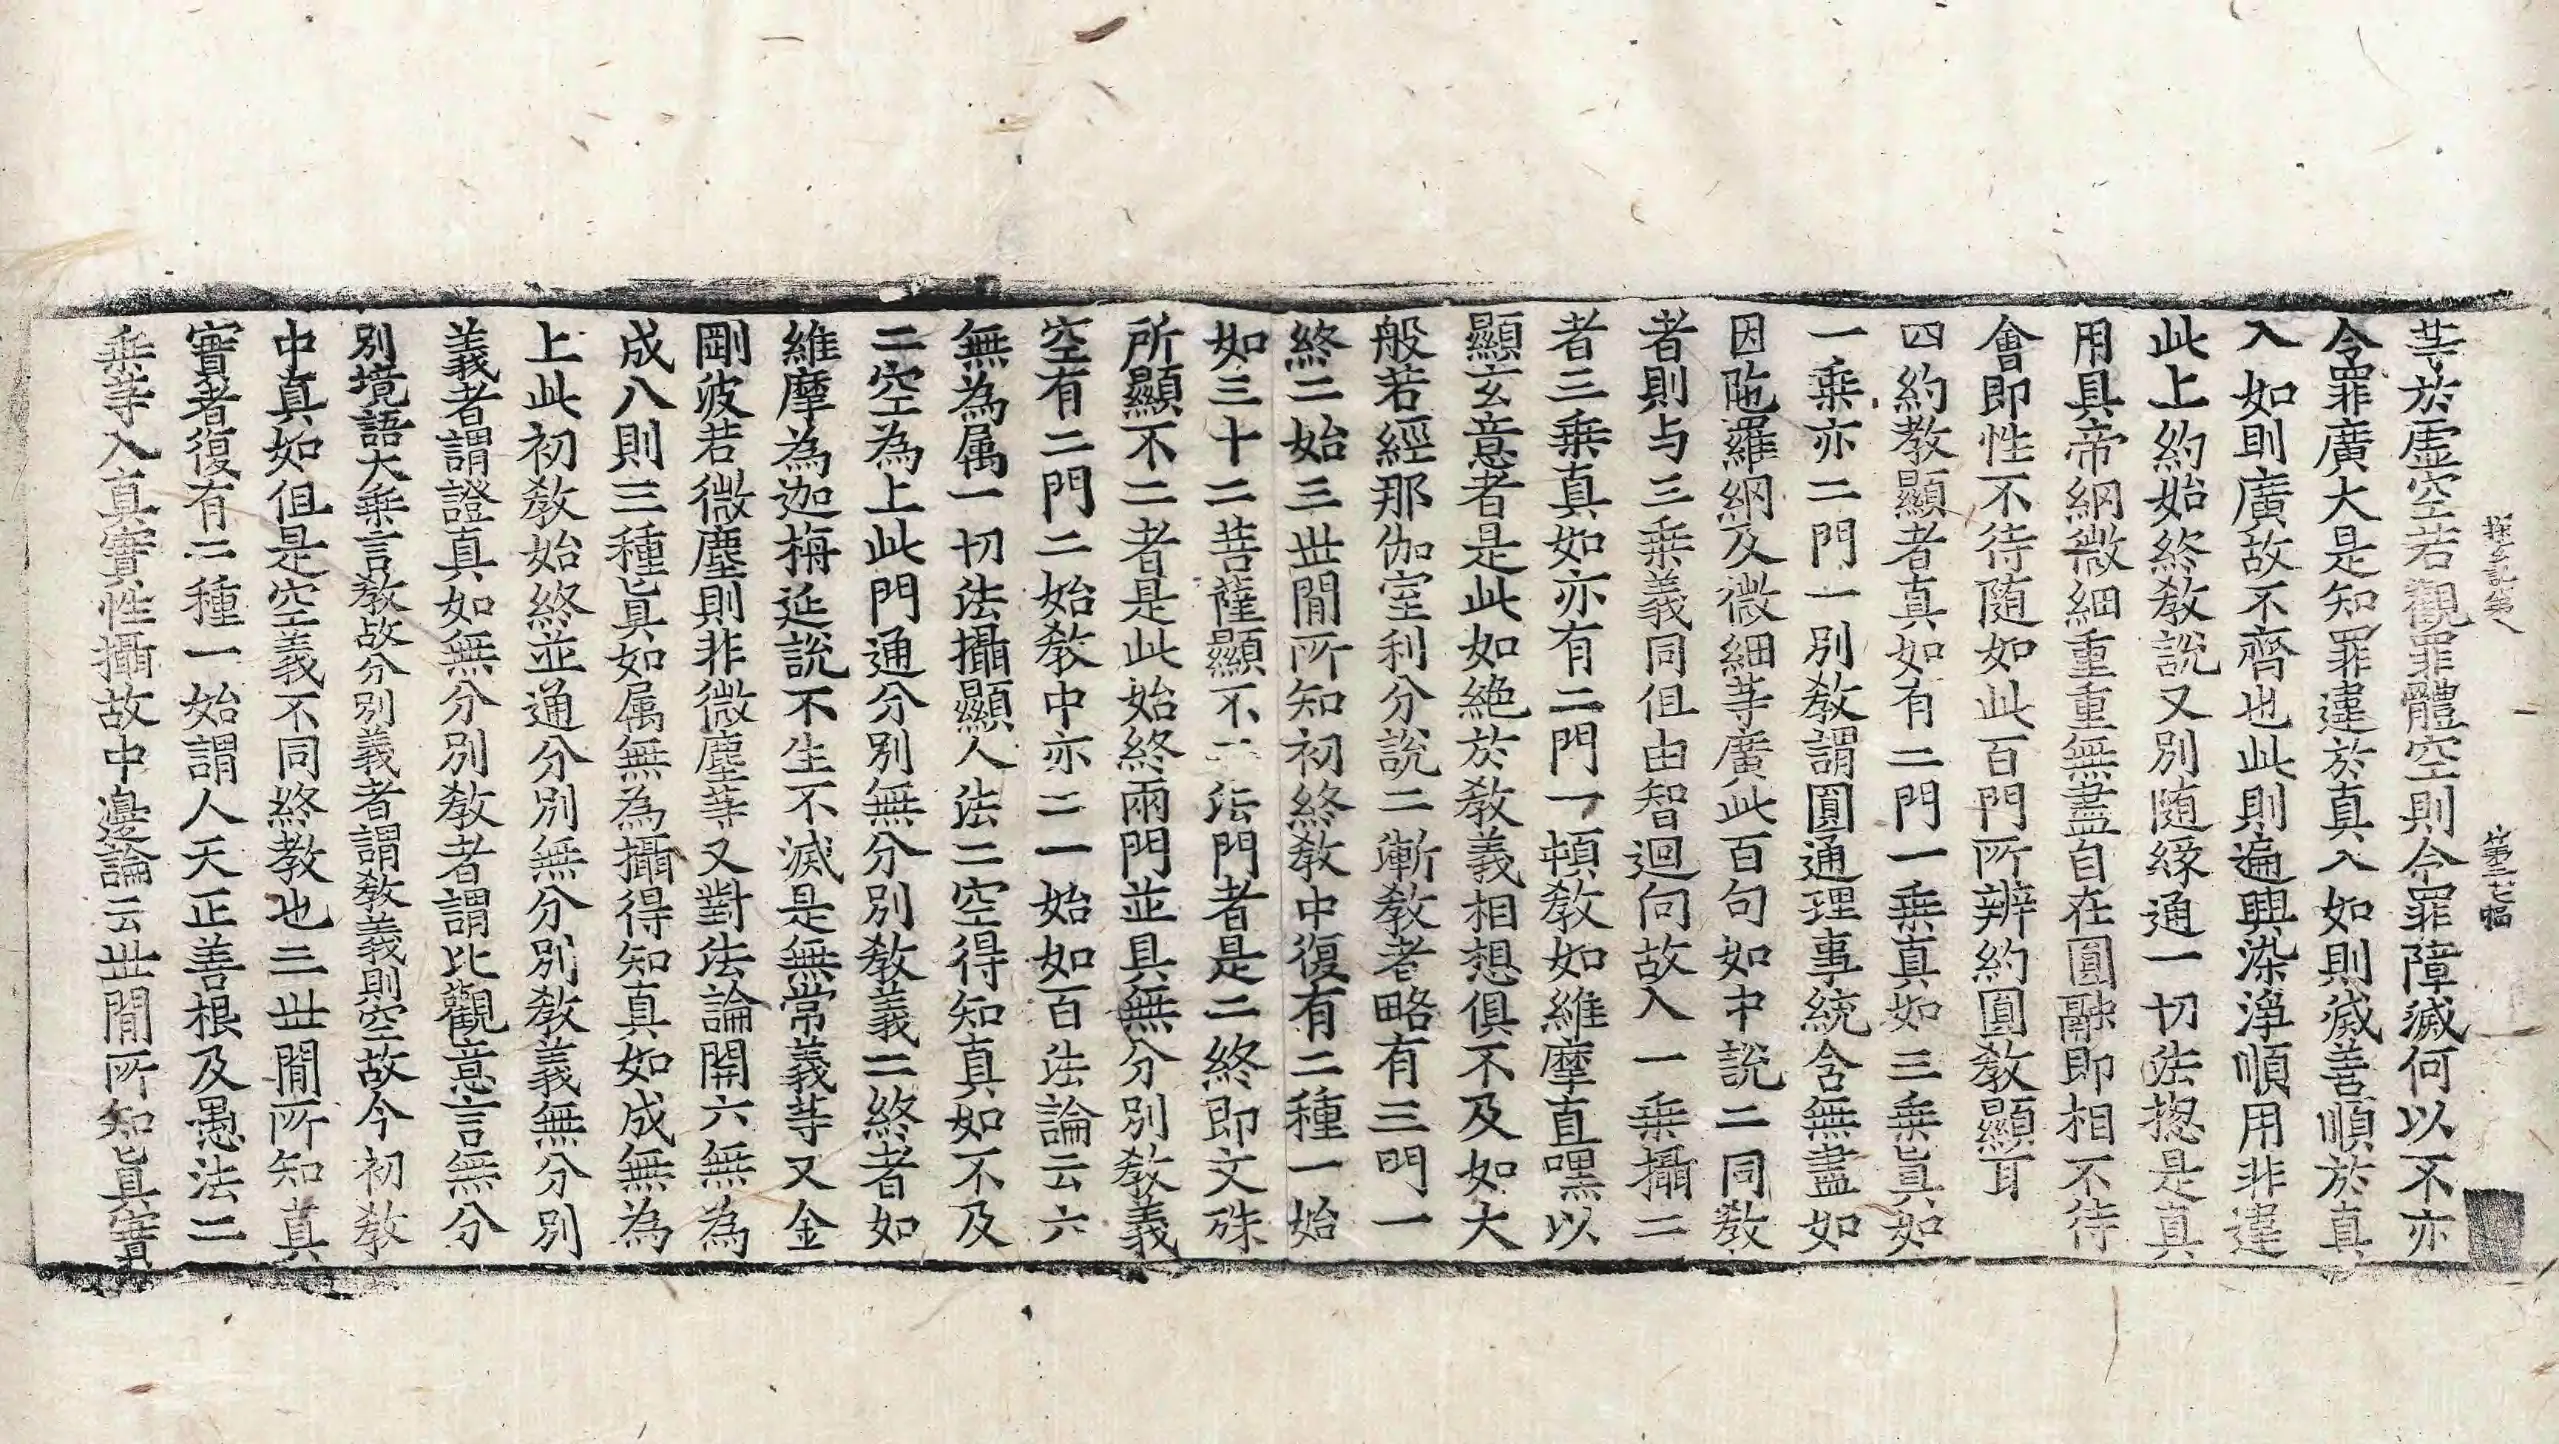 探玄記第八　第三七幅
䓁於虛空若觀罪體空則令罪障滅何以不亦
令罪廣大是知罪違於真入如則滅善順於真
入如則廣故不齊也此則遍興染淨順用非違
此上約始終教説又別随緣通一切法揔是真
用具帝網微細重重無盡自在圓融即相不待
會即性不待随如此百門所辨約圓教顯耳
四約教顯者真如有二門一乗真如三乗真如
一乗亦二門一別教謂圓通理事統含無盡如
因陁羅網及微細䓁廣此百句如中説二同教
者則与三乗義同但由智迴向故入一乗攝二
者三乗真如亦有二門一頓教如維摩直嘿以
顯玄意者是此如絶於教義相想俱不及如大
般若經那伽室利分説二漸教者略有三門一
終二始三世間所知初終教中復有二種一始
如三十二菩薩顯不二法門者是二終即文殊
所顯不二者是此始終兩門並具無分別教義
空有二門二始教中亦二一始如百法論云六
無為属一切法攝顯人法二空得知真如不及
二空為上此門通分別無分別教義二終者如
維摩為迦栴延説不生不滅是無常義䓁又金
剛波若微塵則非微塵䓁又對法論開六無為
成八則三種真如属無為攝得知真如成無為
上此初教始終並通分別無分別教義無分別
義者謂證真如無分別教者謂比觀意言無分
別境語大乗言教故分別義者謂教義則空故今初教
中真如但是空義不同終教也三世間所知真
實者復有二種一始謂人天正善根及愚法二
乗䓁入真實性攝故中邊論云世間所知真實